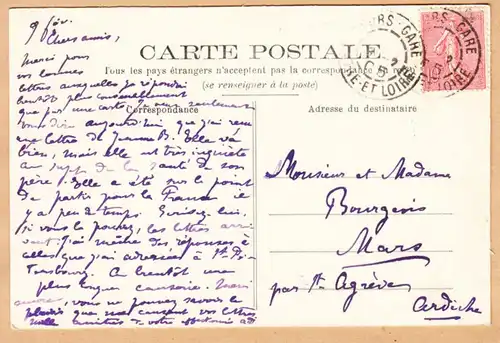 9 fév.
Chers amis,
Merci pour
vos bonnes
lettres auxquelles je répondrai
bientôt plus convenablement
que par une carte. Je veux seulement
vous dire aujourd'hui que j'ai reçu
une lettre de Jeanne B. Elle va
bien, mais elle est très inquiète
au sujet de la santé de son
père. Elle a été sur le point
de partir pour la France il
y a peu de temps. Ecrivez-lui.
Si vous le pouvez, les lettres arri
vent. J'ai même des réponses à
celles que j'ai adressées à St Pé-
tersbourg. A bientôt une
plus longue causerie. Merci
encore, vous ne pouvez savoir le
plaisir que me causent vos lettres
mille amitiés de votre
CARTE POSTALE
Tous les pays étrangers n'acceptent pas la correspondance
(se renseigner à la poste)
Correspondance
Adresse du destinataire
RS-GARE
ET-LOIRE
Monsieur et Madame
Bourgeois
Mars
par St Agrève
Ardèche